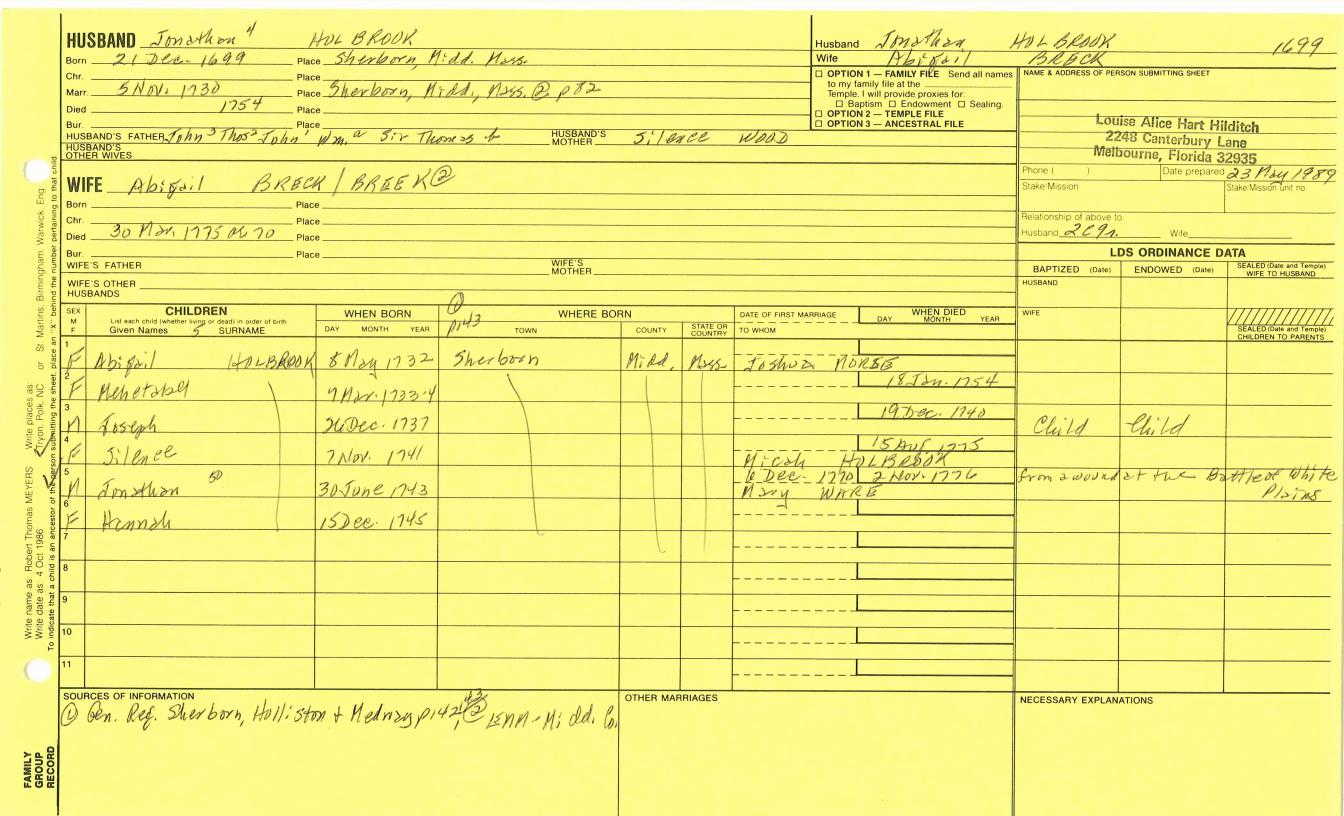 HUSBAND Jonathan 4 HOLBROOK
Born 21 Dec. 1699 Place Sherborn, Midd. Mass.
Chr. Place
Marr. 5 Nov. 1730 Place Sherborn, Midd., Mass. ② p82
Died 1754 Place
Bur. Place
HUSBAND'S FATHER John 3 Thos 2 John 1 Wm. a Sir Thomas b HUSBAND'S MOTHER Silence WOOD
HUSBAND'S OTHER WIVES
Husband Jonathan HOLBROOK 1699
Wife Abigail BRECK
☐ OPTION 1 — FAMILY FILE Send all names
to my family file at the
Temple. I will provide proxies for
☐ Baptism ☐ Endowment ☐ Sealing.
☐ OPTION 2 — TEMPLE FILE
☐ OPTION 3 — ANCESTRAL FILE
NAME & ADDRESS OF PERSON SUBMITTING SHEET
Louise Alice Hart Hilditch
2248 Canterbury Lane
Melbourne, Florida 32935
Phone ( ) Date prepared 23 May 1989
Stake/Mission Stake/Mission unit no.
Relationship of above to
Husband 2C9r. Wife
WIFE Abigail BRECK / BREEK ②
Born Place
Chr. Place
Died 30 Mar. 1775 or 70 Place
Bur. Place
WIFE'S FATHER WIFE'S MOTHER
WIFE'S OTHER HUSBANDS
LDS ORDINANCE DATA
BAPTIZED (Date) ENDOWED (Date) SEALED (Date and Temple) WIFE TO HUSBAND
HUSBAND
WIFE
SEALED (Date and Temple) CHILDREN TO PARENTS
SEX M F CHILDREN List each child (whether living or dead) in order of birth Given Names 5 SURNAME
WHEN BORN DAY MONTH YEAR
① p143 WHERE BORN TOWN COUNTY STATE OR COUNTRY
DATE OF FIRST MARRIAGE TO WHOM
WHEN DIED DAY MONTH YEAR
1 F Abigail HOLBROOK 8 May 1732 Sherborn Midd. Mass Joshua MORSE
2 F Mehetabel 9 Mar. 1733-4 18 Jan. 1754
3 M Joseph 26 Dec. 1737 19 Dec. 1740 Child Child
4 F Silence 7 Nov. 1741 15 Aug 1775 Micah HOLBROOK
5 M Jonathan 30 June 1743 6 Dec. 1770 2 Nov. 1776 Mary WARE from a wound at the Battle of White Plains
6 F Hannah 15 Dec. 1745
7
8
9
10
11
SOURCES OF INFORMATION
① Gen. Reg. Sherborn, Holliston + Medway p142, 143 ② Midd. Co.
OTHER MARRIAGES
NECESSARY EXPLANATIONS
FAMILY GROUP RECORD
Write name as: Robert Thomas MEYERS Write places as
Write date as: 4 Oct 1986 Tryon, Polk, NC or St Martins, Birmingham, Warwick, Eng
To indicate that a child is an ancestor of the person submitting the sheet, place an "X" behind the number pertaining to that child